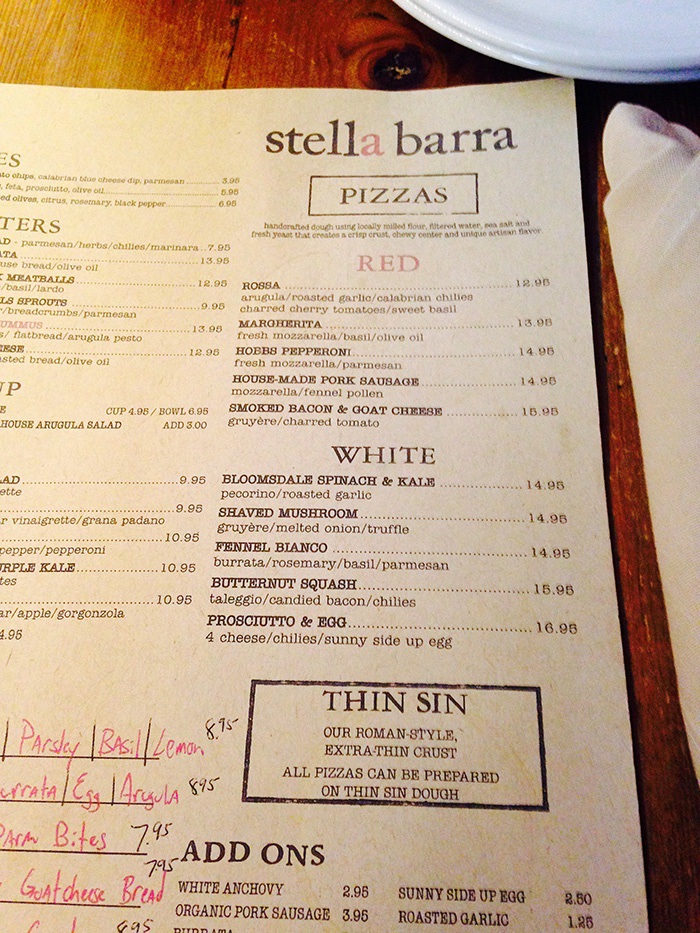 stella barra
PIZZAS
handcrafted dough using locally milled flour, filtered water, sea salt and
fresh yeast that creates a crisp crust, chewy center and unique artisan flavor.
RED
ROSSA 12.95
arugula/roasted garlic/calabrian chilies
charred cherry tomatoes/sweet basil
MARGHERITA 13.95
fresh mozzarella/basil/olive oil
HOBBS PEPPERONI 14.95
fresh mozzarella/parmesan
HOUSE-MADE PORK SAUSAGE 14.95
mozzarella/fennel pollen
SMOKED BACON & GOAT CHEESE 15.95
gruyère/charred tomato
WHITE
BLOOMSDALE SPINACH & KALE 14.95
pecorino/roasted garlic
SHAVED MUSHROOM 14.95
gruyère/melted onion/truffle
FENNEL BIANCO 14.95
burrata/rosemary/basil/parmesan
BUTTERNUT SQUASH 15.95
taleggio/candied bacon/chilies
PROSCIUTTO & EGG 16.95
4 cheese/chilies/sunny side up egg
THIN SIN
OUR ROMAN-STYLE,
EXTRA-THIN CRUST
ALL PIZZAS CAN BE PREPARED
ON THIN SIN DOUGH
ADD ONS
WHITE ANCHOVY 2.95
ORGANIC PORK SAUSAGE 3.95
SUNNY SIDE UP EGG 2.50
ROASTED GARLIC 1.25
chips, calabrian blue cheese dip, parmesan 3.95
feta, prosciutto, olive oil 5.95
olives, citrus, rosemary, black pepper 6.95
- parmesan/herbs/chilies/marinara 7.95
13.95
bread/olive oil
MEATBALLS 12.95
/basil/lardo
SPROUTS 9.95
/breadcrumbs/parmesan
13.95
/ flatbread/arugula pesto
12.95
bread/olive oil
CUP 4.95 / BOWL 6.95
HOUSE ARUGULA SALAD ADD 3.00
9.95
9.95
vinaigrette/grana padano
10.95
pepper/pepperoni
KALE 10.95
10.95
/apple/gorgonzola
4.95
Parsley | Basil | Lemon 8.95
| Egg | Arugula 8.95
Bites 7.95
Goatcheese Bread 7.95
8.95